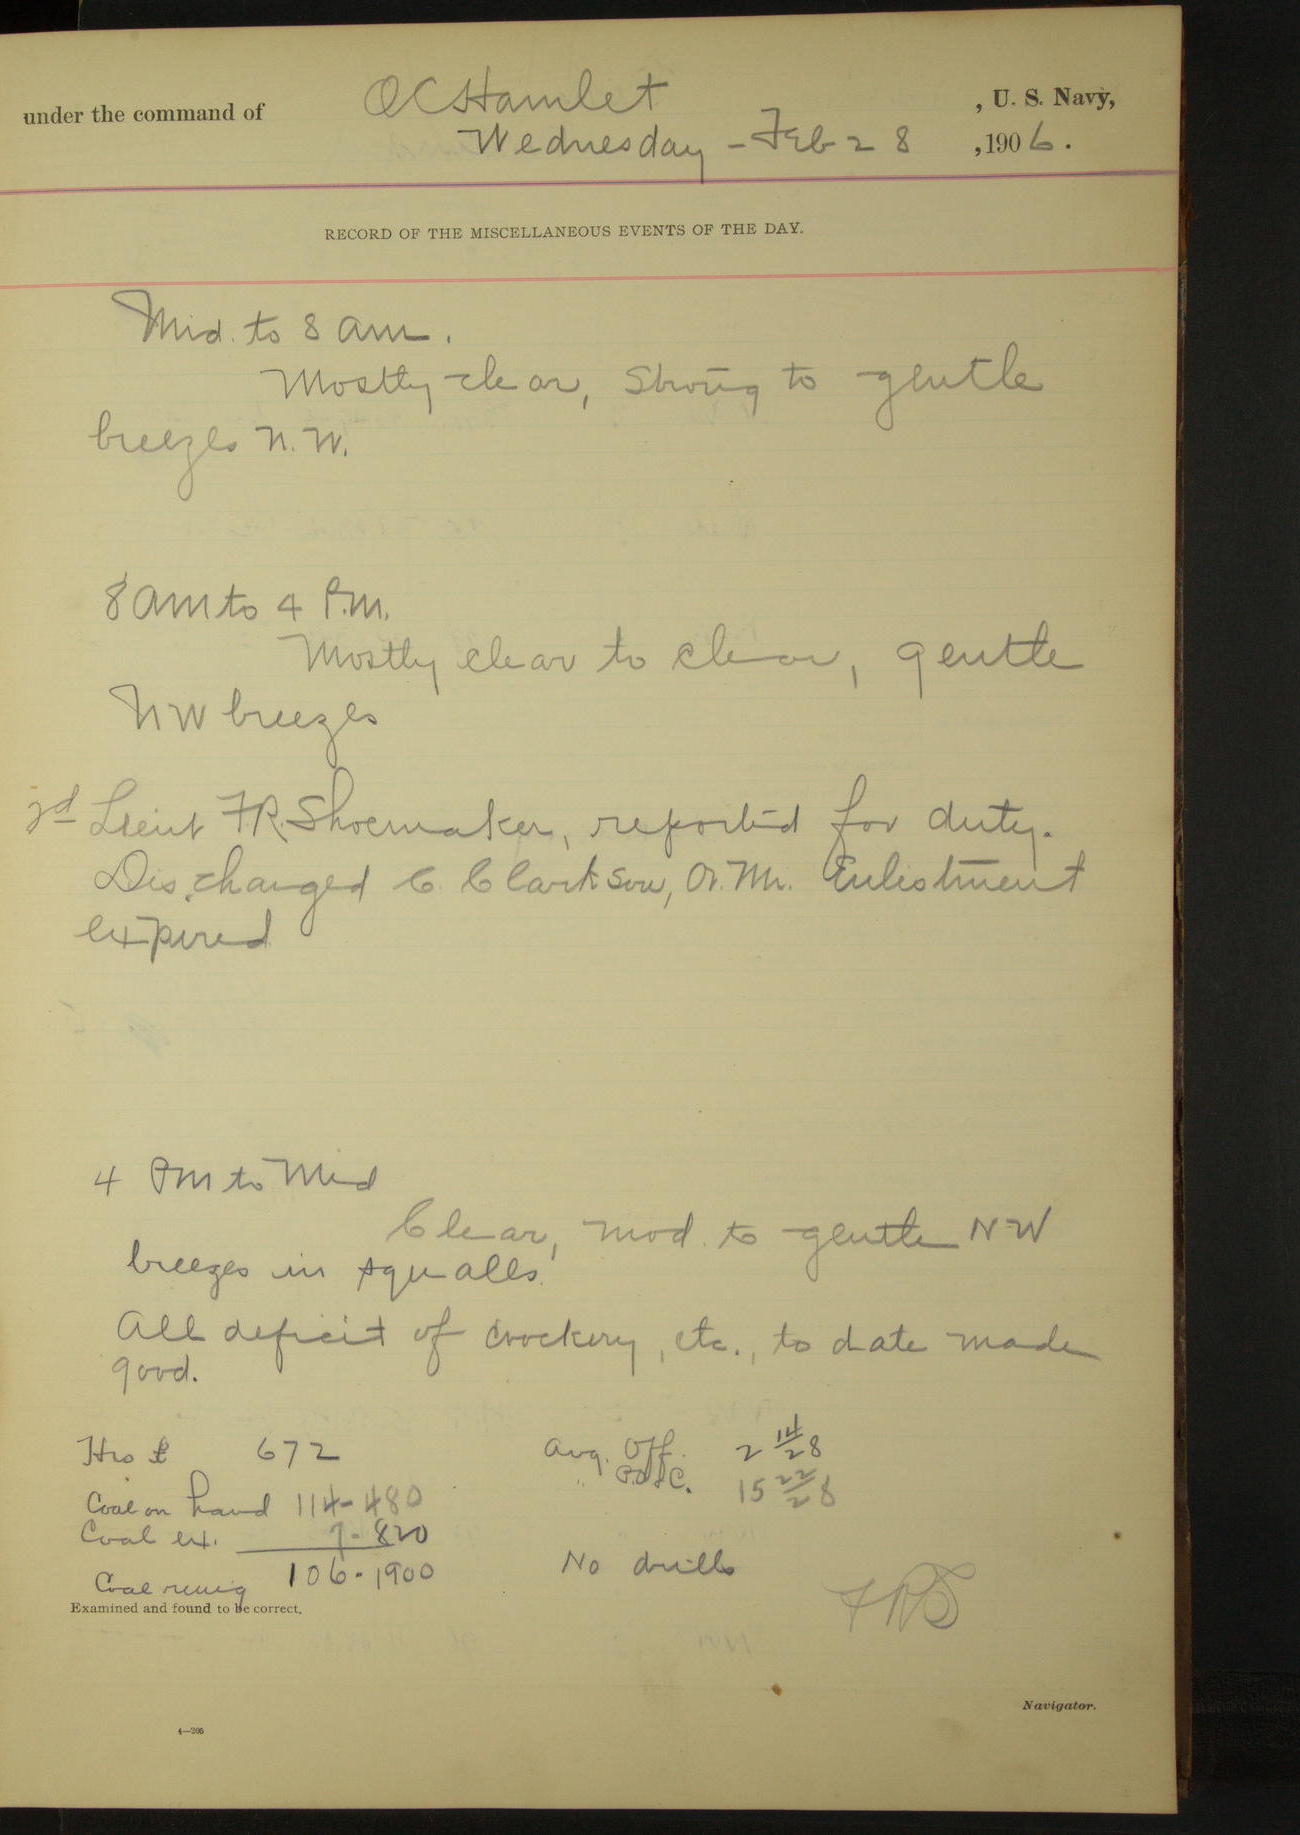 under the command of O C Hamlet , U. S. Navy,
Wednesday - Feb 28 , 1906.
RECORD OF THE MISCELLANEOUS EVENTS OF THE DAY.
Mid. to 8 am.
Mostly clear, Strong to gentle
breezes N. W.
8 am to 4 P.M.
Mostly clear to clear, gentle
NW breezes
Lieut F.R. Shoemaker, reported for duty.
Discharged C. Clarkson, Enlistment
expired
4 PM to Mid
Clear, mod. to gentle NW
breezes in squalls.
All deficit of crockery, etc., to date made
good.
Hrs 672 Avg. Off. 2 14/28
" 15 22/28
Coal on hand 114-480
Coal ex. 7-820
No drills
106-1900
Coal remig
Examined and found to be correct.
FRS
Navigator.
4—206